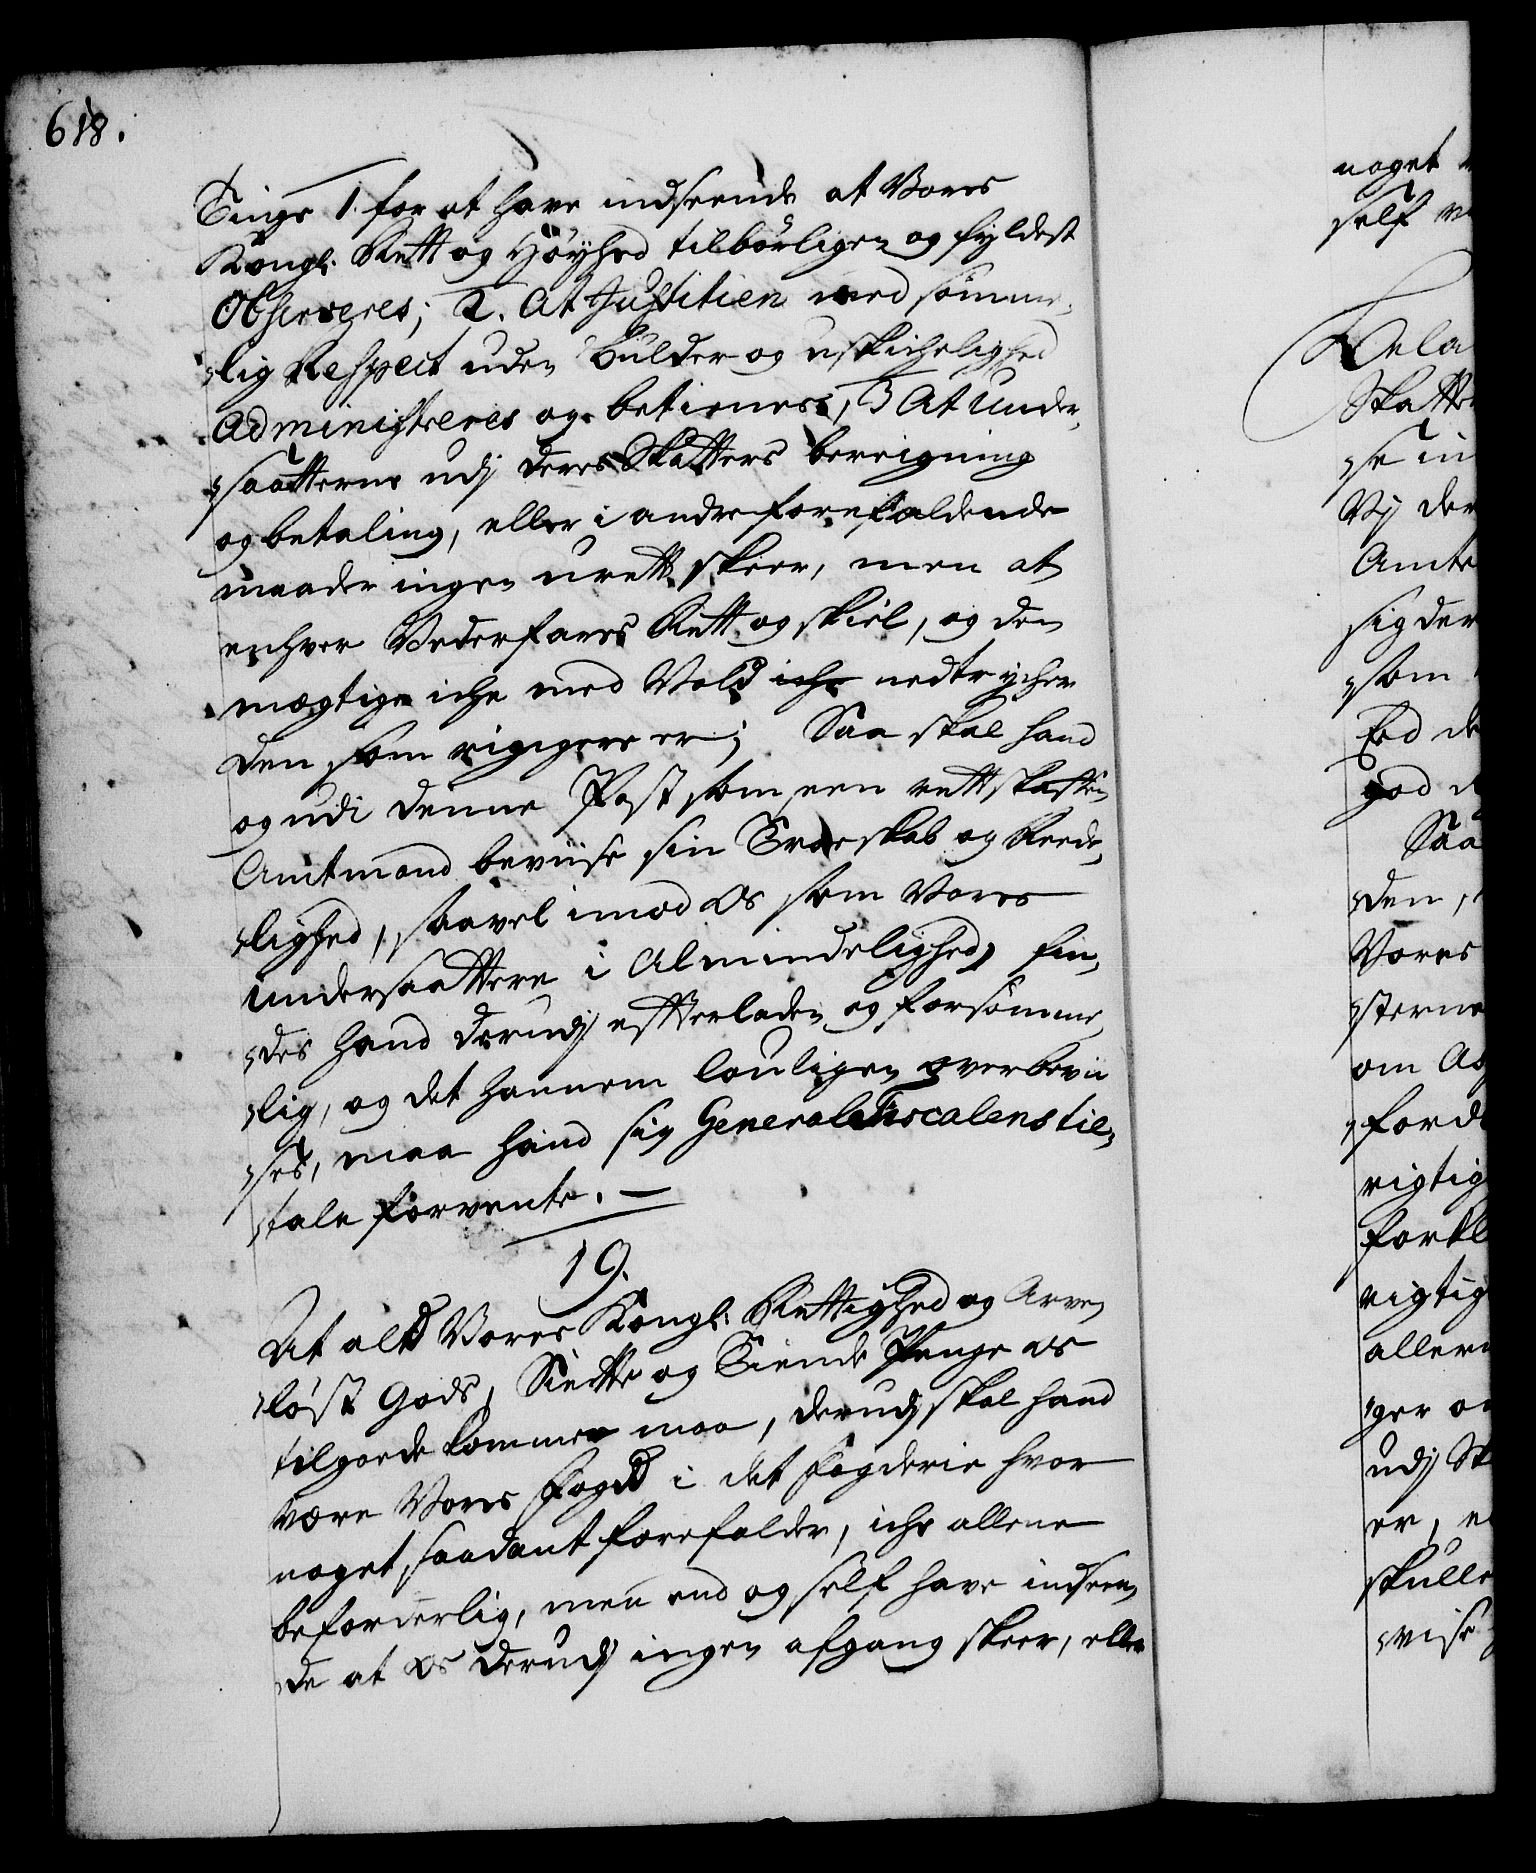 618.
Tings 1. for at have indseende at Vores
Kongl: Rett og Höyhed tilbörligen og fyldest
Observeres; 2. At Justitien med sömme,
„lig Respect uden bulder og uskichelighed
Administreres og betienes, 3 At Under,
„saatterne udj deres Skatters bereigning
og betaling, eller i andre forefaldende
maader ingen urett skeer, men at
enhver Vederfares Rett og skiel, og den
mægtige iche med Vold iche nedtrycher
den som ringere er; Saa skal hand
og udi denne Post som een rettskaffen
Amtmand beviise sin Troeskab og Reede,
„lighed, saavel imod Os som Vores
undersaattere i Almindelighed, fin,
„des hand derudj efterladen og forsömme,
„lig, og det hannem louligen overbevii
„ses, maa hand sig General Fiscalens til,
„tale forvente. —
19.
At alt Vores Kongl: Rettighed og Arve,
„löst Gods, Siette og Tiende Penge os
tilgoede komme maa, derudj skal hand
være Vores Fogd i det fogderie hvor
noget saadant forefalder, iche allene
beforderlig, men end og self have indseen,
„de at Os derudj ingen afgang skeer, eller
noget
self
Rela
Skatte
„se in
Vj der
Amte
sig der
„som
Eed de
god
Saa
„den,
Vores
„sterne
om Ab
„forde
rigtig
forkl
rigtig
aller
„ger
udj Sk
er,
skulle
„vise